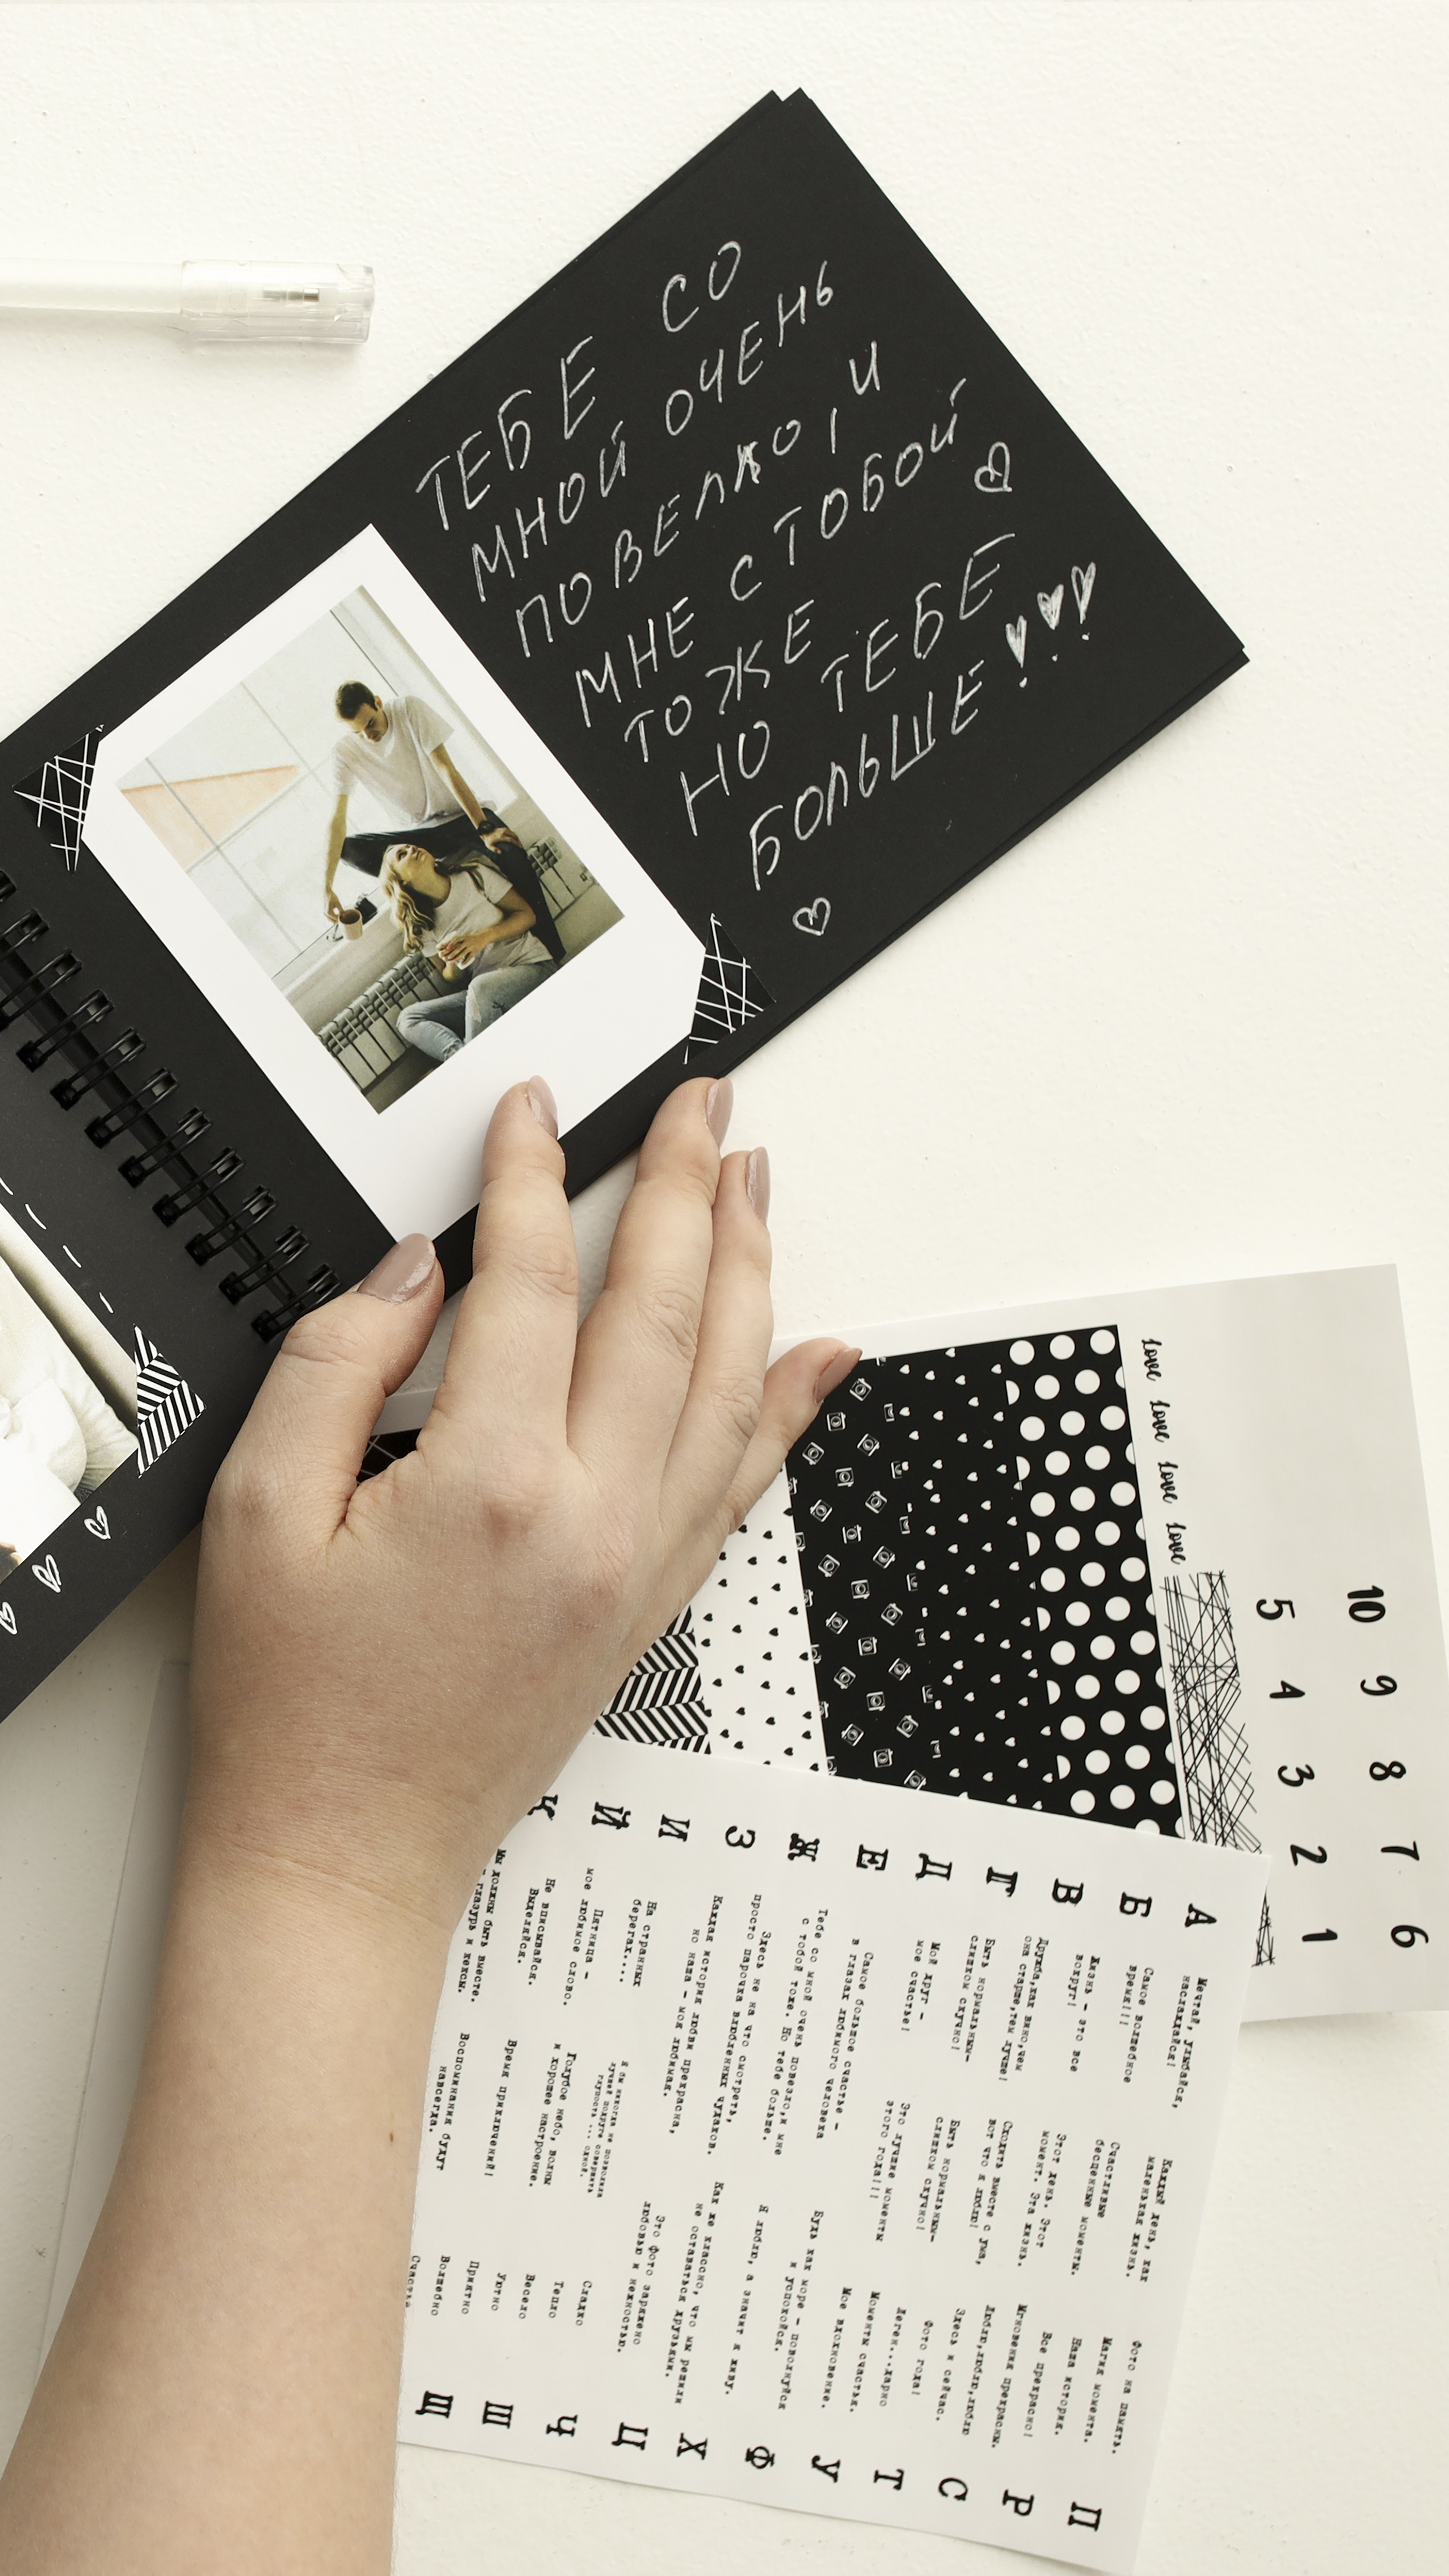 ТЕБЕ СО
МНОЙ ОЧЕНЬ
ПОВЕЛКО, И
МНЕ С ТОБОЙ
ТОЖЕ
НО ТЕБЕ
БОЛЬШЕ!!!
love love love love
5 4 3 2 1
10 9 8 7 6
А Б В Г Д Е Ж З И Й К
Мечтай, улыбайся,
наслаждайся!
Самое волшебное
время!!!
Жизнь – это все
вокруг!
Дружба,как вино,чем
она старше,тем лучше!
Быть нормальным–
слишком скучно!
Мой друг –
мое счастье!
Самое большое счастье –
в глазах любимого человека
Тебе со мной очень повезло,и мне
с тобой тоже. Но тебе больше.
Здесь не на что смотреть,
просто парочка влюбленных чудаков.
Каждая история любви прекрасна,
но наша – моя любимая.
На странных
берегах....
Пятница –
мое любимое слово.
Не вписывайся.
Выделяйся.
Мы должны быть вместе.
глазурь и кексы.
Каждый день, как
маленькая жизнь.
Счастливые
бесценные моменты.
Этот день. Этот
момент. Эта жизнь.
Сходить вместе с ума,
вот что я люблю!
Быть нормальным–
слишком скучно!
Это лучшие моменты
этого года!!!
Будь как море – поволнуйся
и успокойся.
Я люблю, а значит я живу.
Как же классно, что мы решили
не оставаться друзьями.
Это фото заряжено
любовью и нежностью.
Я бы никогда не позволила
лучшей подруге совершить
глупость ... одной.
Голубое небо, волны
и хорошее настроение.
Время приключений!
Воспоминания будут
навсегда.
Фото на память.
Магия момента.
Наша история.
Все прекрасно!
Мгновения прекрасны.
Люблю,люблю,люблю
Здесь и сейчас.
Фото года!
Леген...дарно
Моменты счастья.
Мое вдохновение.
Сладко
Тепло
Весело
Уютно
Приятно
Волшебно
П Р С Т У Ф Х Ц Ч Ш Щ